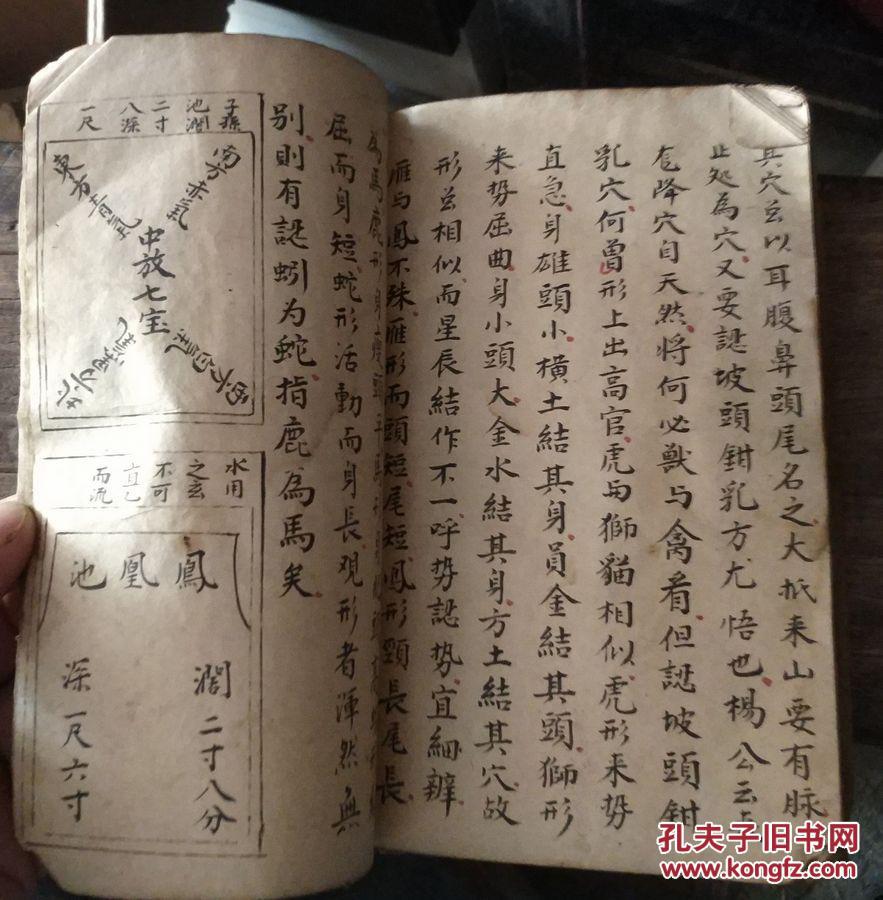 其穴并以耳腹鼻頭尾名之大抵来山要有脉
止処為穴又要認坡頭鉗乳方尤悟也楊公云
降穴自天然将何必獣与禽看但認坡頭鉗
乳穴何曽形上出高官虎与獅貓相似虎形来势
直急身雄頭小横土結其身員金結其頭獅形
来势屈曲身小頭大金水結其身方土結其穴故
形并相似而星辰結作不一呼势認势宜細辨
雁与鳳不殊雁形而頭短尾短鳳形頸長尾長
為馬鹿形身
屈而身短蛇形活動而身長观形者渾然無
別則有認蚓为蛇指鹿為馬矣
子孫
池濶
二寸
八深
一尺
南方赤氣
東方青氣
中放七宝
西方白氣
水用
之玄
不可
直
而流
鳳凰池
濶二寸八分
深一尺六寸
孔夫子旧书网
www.kongfz.com